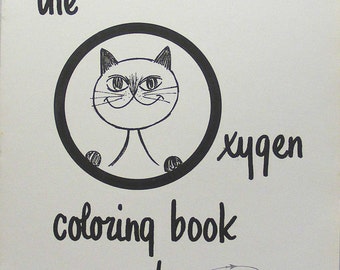 the
Oxygen
coloring book